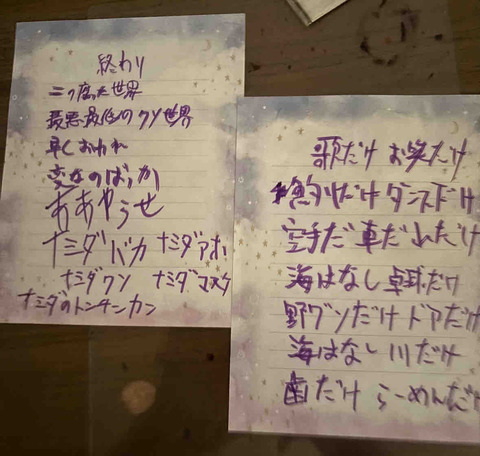 終わり
二つ腐った世界
最悪最低のクソ世界
早くおわれ
変なのばっか
ああやうせ
ナミダバカ ナミダアホ
ナミダクソ ナミダマスク
ナミダのトンチンカン
歌だけ お笑だけ
だけ ダンスだけ
空手だ 車だ れだけ
海はなし 卓球だけ
野グソだけ ドアだけ
海はなし 川だけ
歯だけ らーめんだけ